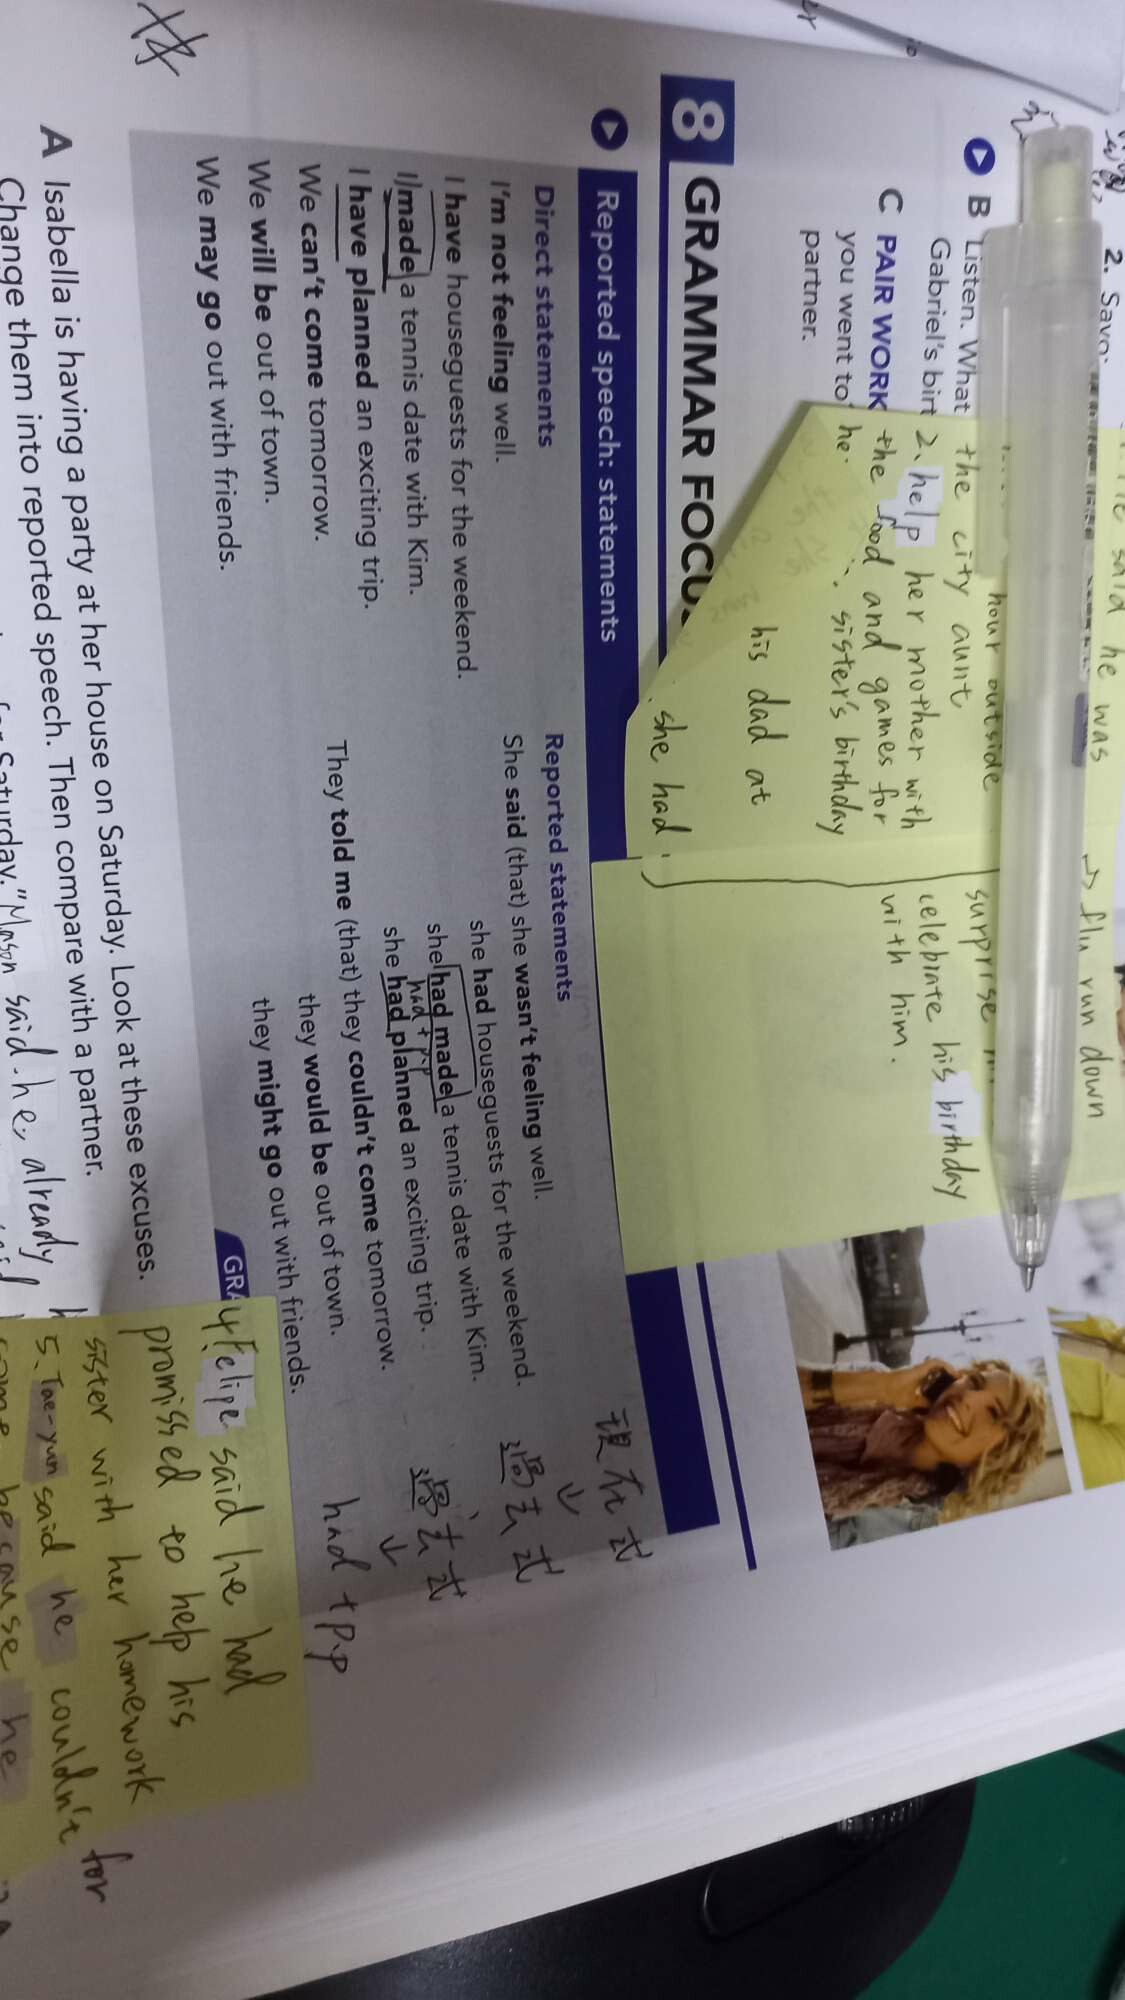 2. Savo:
B Listen. What
Gabriel's birt
C PAIR WORK
you went to
partner.
he said he was
→ flu run down
hour outside
the city aunt
2. help her mother with
the food and games for
he. sister's birthday
his dad at
she had
surprise
celebrate his birthday
with him.
8 GRAMMAR FOCUS
Reported speech: statements
Direct statements
I'm not feeling well.
I have houseguests for the weekend.
I made a tennis date with Kim.
I have planned an exciting trip.
We can't come tomorrow.
We will be out of town.
We may go out with friends.
Reported statements
She said (that) she wasn't feeling well.
she had houseguests for the weekend.
she had made a tennis date with Kim.
had + p.p
she had planned an exciting trip.
They told me (that) they couldn't come tomorrow.
they would be out of town.
they might go out with friends.
現在式
↓
過去式
過去式
↓
had + p.p
GRA
A Isabella is having a party at her house on Saturday. Look at these excuses.
Change them into reported speech. Then compare with a partner.
for Saturday." Mason said he already
4. Felipe said he had
promised to help his
sister with her homework
5. Tae-yun said he couldn't for
come because he